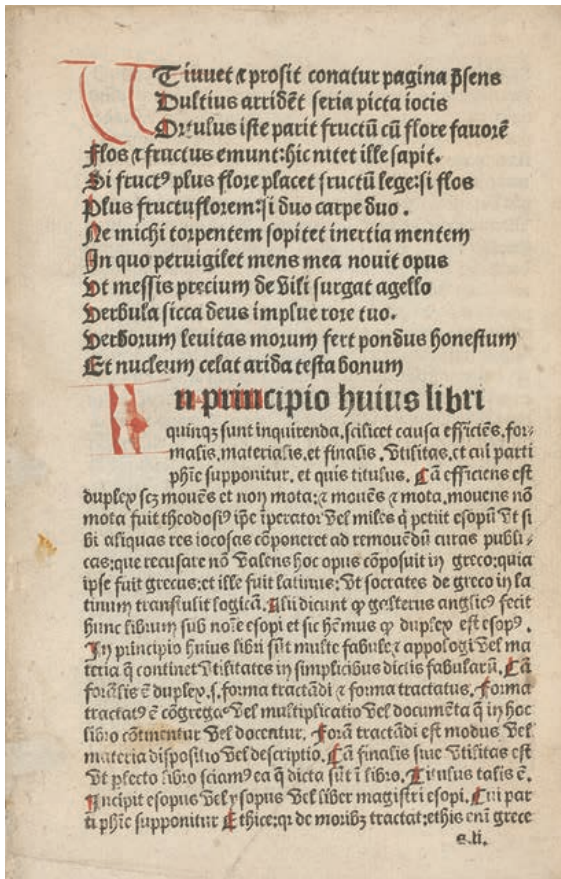 UT iuuet ⁊ prosit conatur pagina p̄sens
Dultius arridēt seria picta iocis
Ortulus iste parit fructū cū flore fauorē
Flos ⁊ fructus emunt: hic nitet ille sapit.
Si fructꝰ plus flore placet fructū lege: si flos
Plus fructu florem: si duo carpe duo.
Ne michi torpentem sopitet inertia mentem
In quo peruigilet mens mea nouit opus
Vt messis precium de vili surgat agello
Verbula sicca deus implue rore tuo.
Verborum leuitas morum fert pondus honestum
Et nucleum celat arida testa bonum
In principio huius libri
quinqꝫ sunt inquirenda. scilicet causa efficiēs. for⸗
malis. materialis. et finalis. vtilitas. et cui parti
phīe supponitur. et quis titulus. Cā efficiens est
duplex scꝫ mouēs et non mota: ⁊ mouēs ⁊ mota. mouens nō
mota fuit theodosiꝰ ip̄e īperator vel miles q̇ petiit esopū vt si
bi aliquas res iocosas cōponeret ad remouēdū curas publi⸗
cas: que recusare nō valens hoc opus cōposuit in greco: quia
ipse fuit grecus: et ille fuit latinus: vt socrates de greco in la
tinum transtulit logicā. Alii dicunt ꝙ galterus anglicꝰ fecit
hunc librum sub noīe esopi et sic hēmus ꝙ duplex est esopꝰ.
In principio huius libri sūt multe fabule ⁊ appologi vel ma
teria q̄ continet vtilitates in simplicibus dictis fabularū. Cā
forālis ē duplex. s. forma tractādi ⁊ forma tractatus. Forma
tractatꝰ ē cōgregaꝰ vel multiplicatio vel documēta q̄ in hoc
libro cōtinentur vel docentur. Forā tractādi est modus vel
materia dispositio vel descriptio. Cā finalis siue vtilitas est
vt ꝑlecto libro sciamꝰ ea q̄ dicta sūt ī libro. Titulus talis ē.
Incipit esopus vel ysopus vel liber magistri esopi. Cui par
ti phīe supponitur Ethice: qꝛ de moribꝫ tractat: ethis enī grece
a.ii.